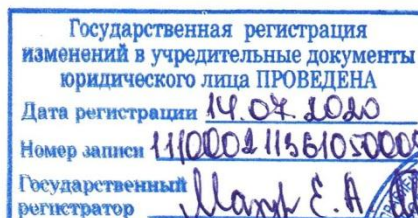 Государственная регистрация
изменений в учредительные документы
юридического лица ПРОВЕДЕНА
Дата регистрации 14.07.2020
Номер записи
Государственный
регистратор Е.А